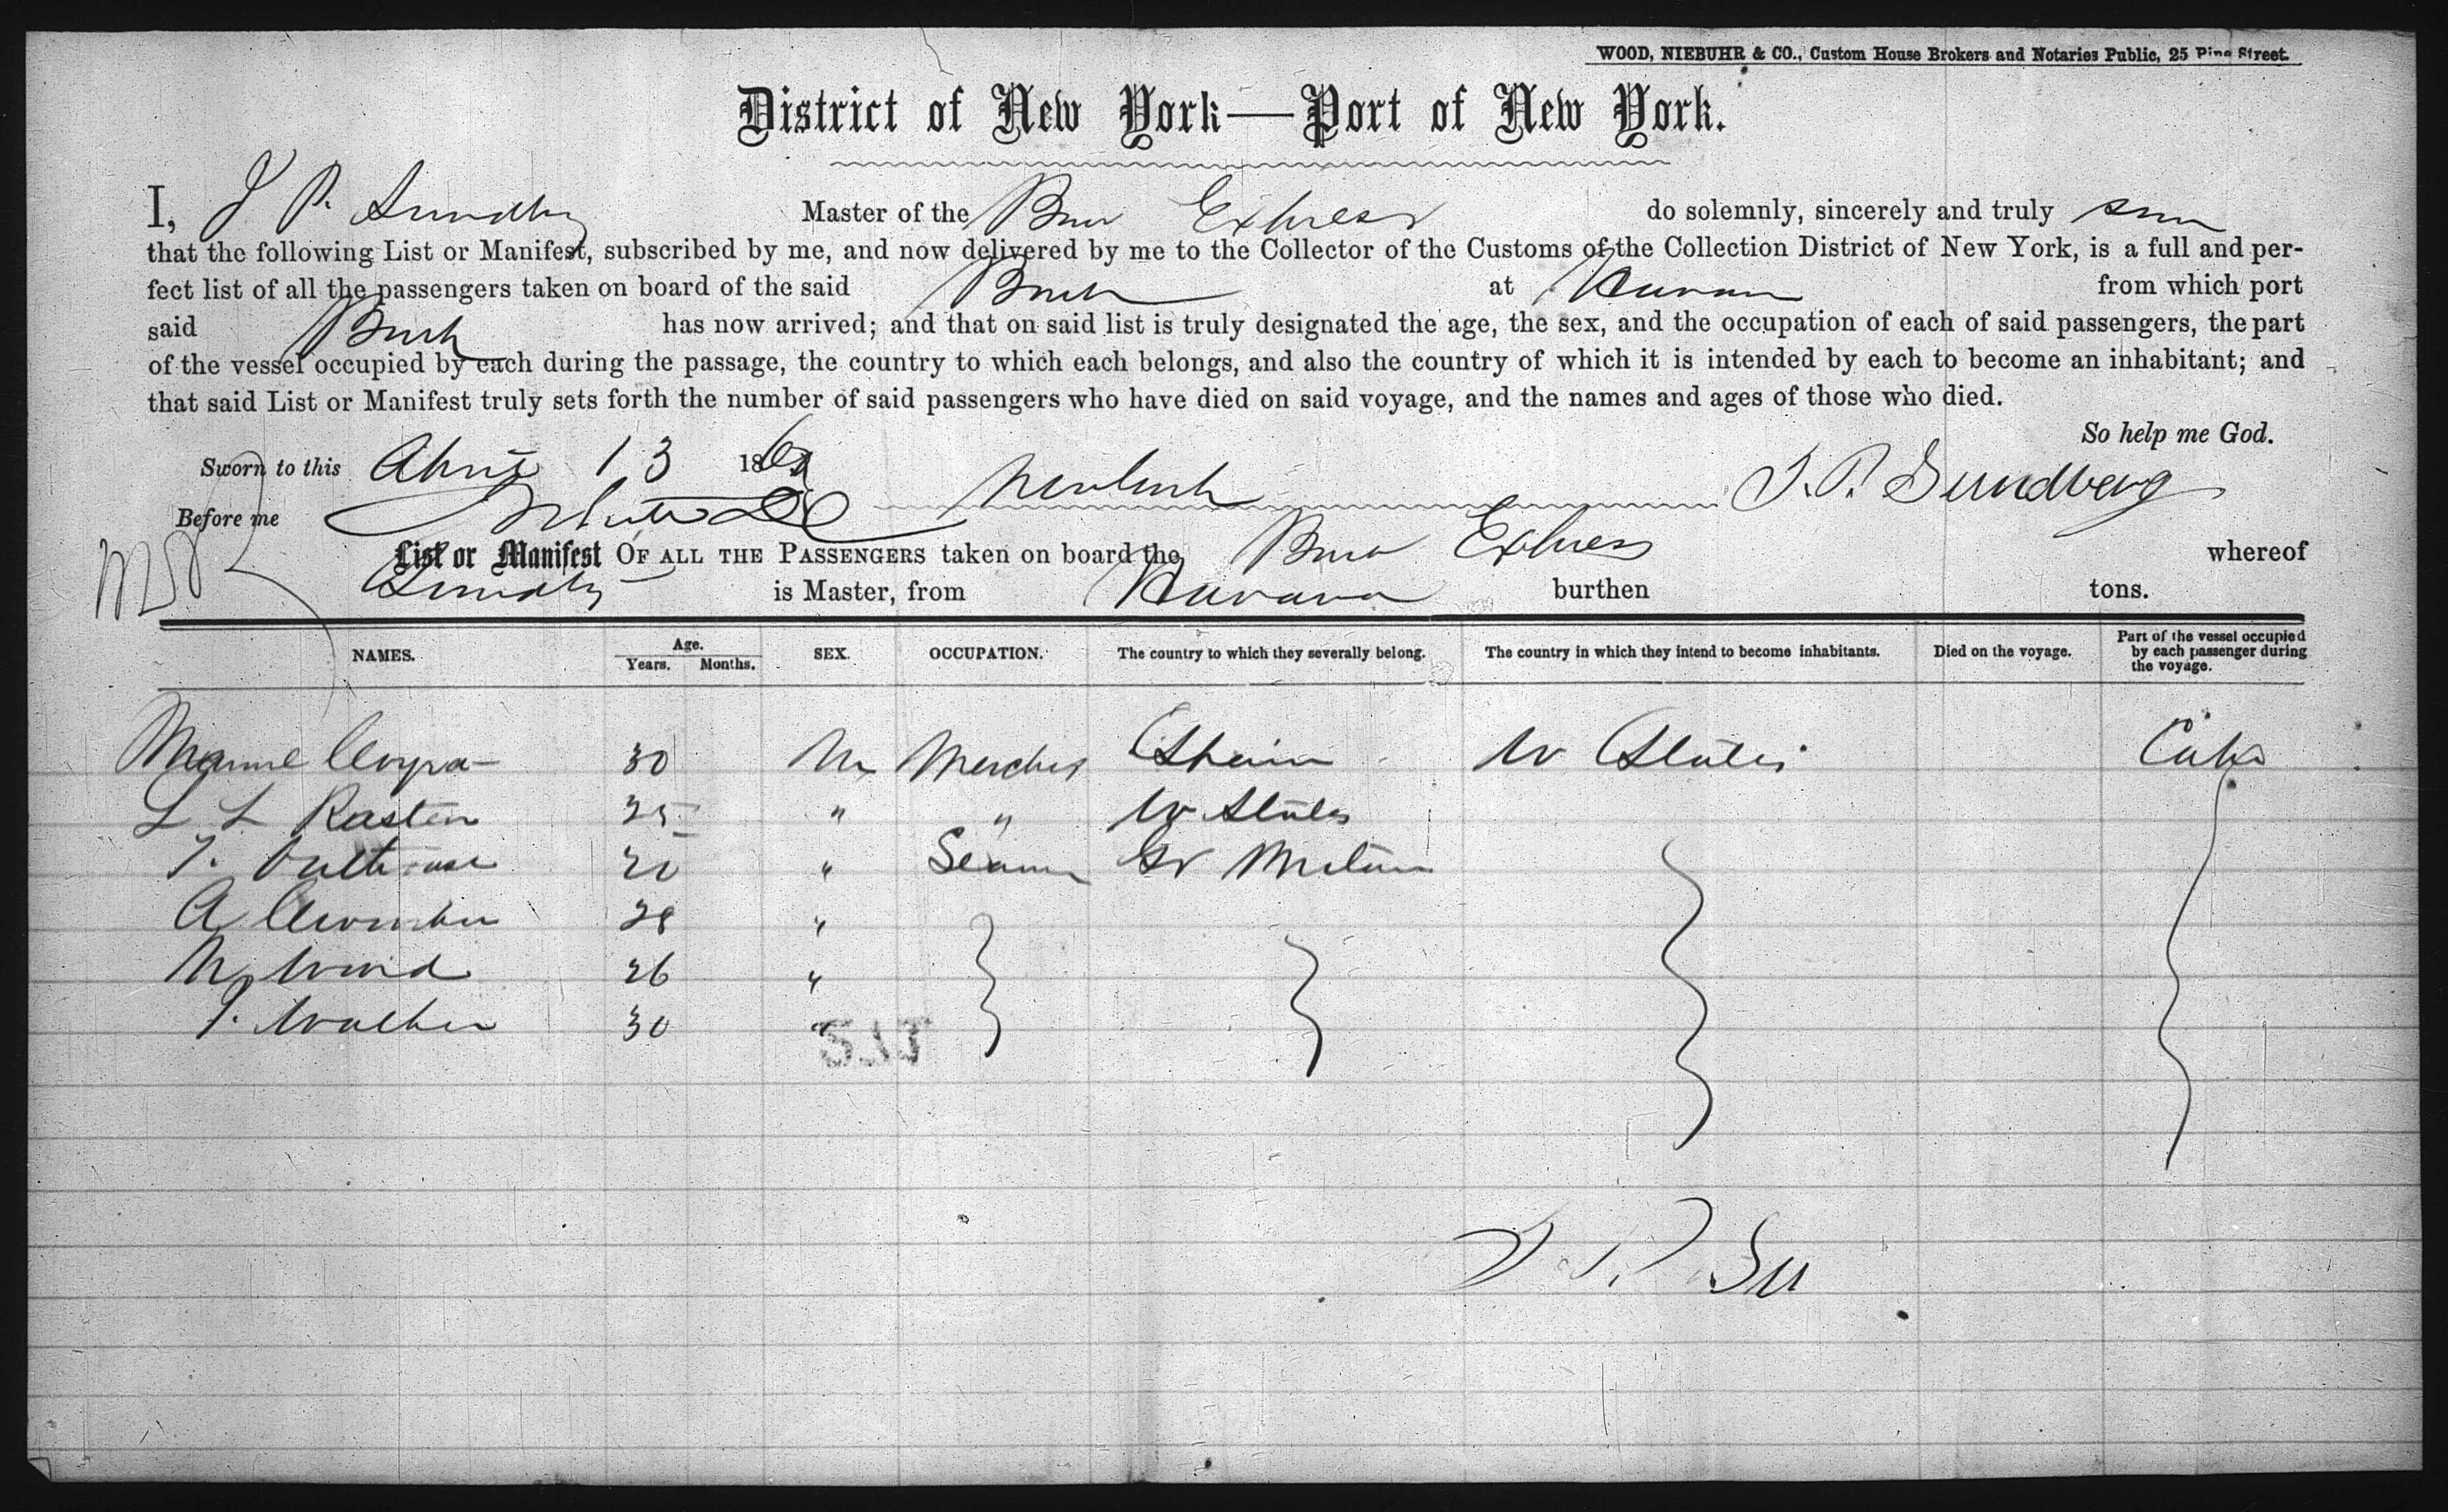 WOOD, NIEBUHR & CO., Custom House Brokers and Notaries Public, 25 Pine Street.
District of New York—Port of New York.
I, J P. Sundberg Master of the Express do solemnly, sincerely and truly
that the following List or Manifest, subscribed by me, and now delivered by me to the Collector of the Customs of the Collection District of New York, is a full and per-
fect list of all the passengers taken on board of the said at Havana from which port
said has now arrived; and that on said list is truly designated the age, the sex, and the occupation of each of said passengers, the part
of the vessel occupied by each during the passage, the country to which each belongs, and also the country of which it is intended by each to become an inhabitant; and
that said List or Manifest truly sets forth the number of said passengers who have died on said voyage, and the names and ages of those who died.
So help me God.
Sworn to this April 13 186 J. P. Sundberg
Before me
List or Manifest OF ALL THE PASSENGERS taken on board the Express whereof
Sundberg is Master, from Havana burthen tons.
NAMES. Age. Years. Months. SEX. OCCUPATION. The country to which they severally belong. The country in which they intend to become inhabitants. Died on the voyage. Part of the vessel occupied by each passenger during the voyage.
30 M Spain U States
L L Rasten 25 " " U States
T. 20 "
A 28 "
Wood 26 "
Walker 30 "